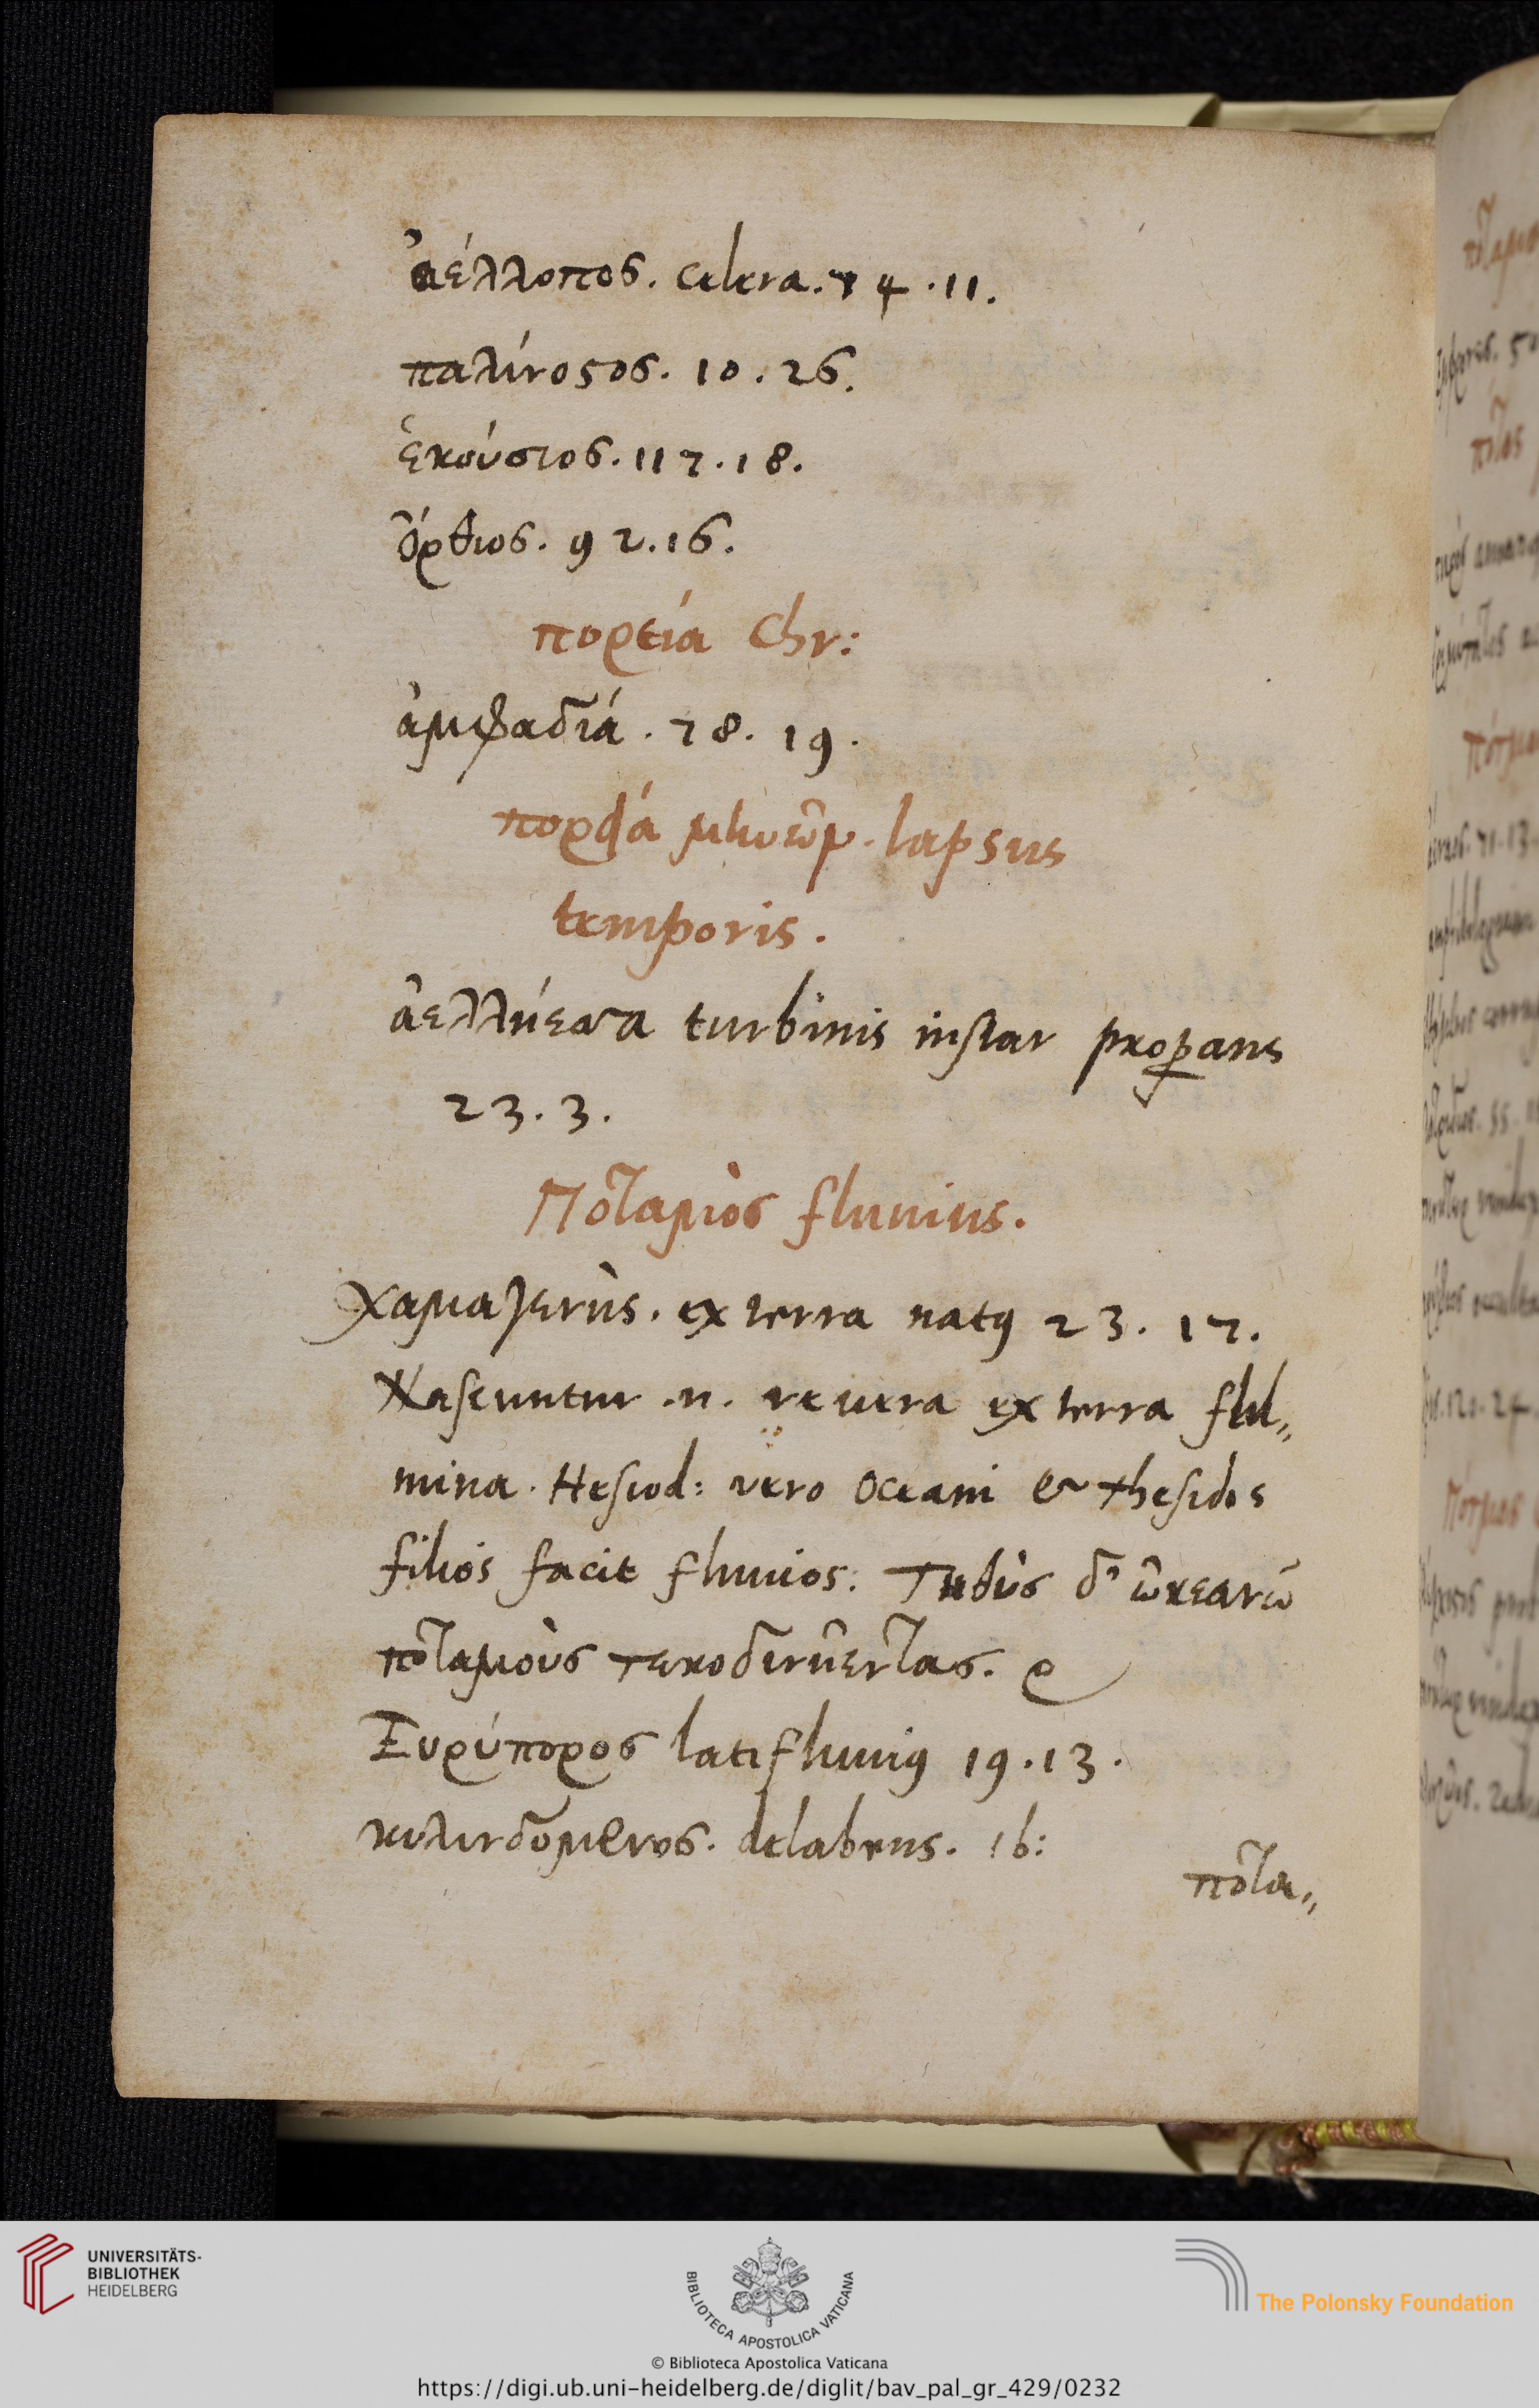 ἀέλλοπος. celera. 74. 11.
παλίνοϛος. 10. 26.
ἑκούσιος. 117. 18.
ὄρθιος. 92. 16.
πορεία Chr:
ἀμφαδιά. 78. 19.
πορεία μηνῶν. lapsus
temporis.
ἀελλήεσσα turbinis instar properans
23. 3.
Ποταμὸς fluuius.
χαμαιγενὴς. ex terra natus 23. 17.
Nascuntur .n. re uera ex terra flu„
mina. Hesiod: vero Oceani & Thesidos
filios facit fluuios: Τηθὺς δ' ὠκεανῷ
ποταμοὺς τέκε δινήεντας.
Εὐρύπορος latifluuius 19. 13.
κυλινδόμενος. delabens. ib:
ποτα„
UNIVERSITÄTS-
BIBLIOTHEK
HEIDELBERG
BIBLIOTECA APOSTOLICA VATICANA
The Polonsky Foundation
© Biblioteca Apostolica Vaticana
https://digi.ub.uni-heidelberg.de/diglit/bav_pal_gr_429/0232